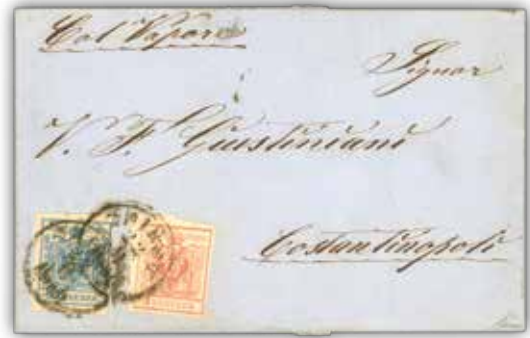 Col Vapore
Signor
V. F. Giustiniani
Costantinopoli